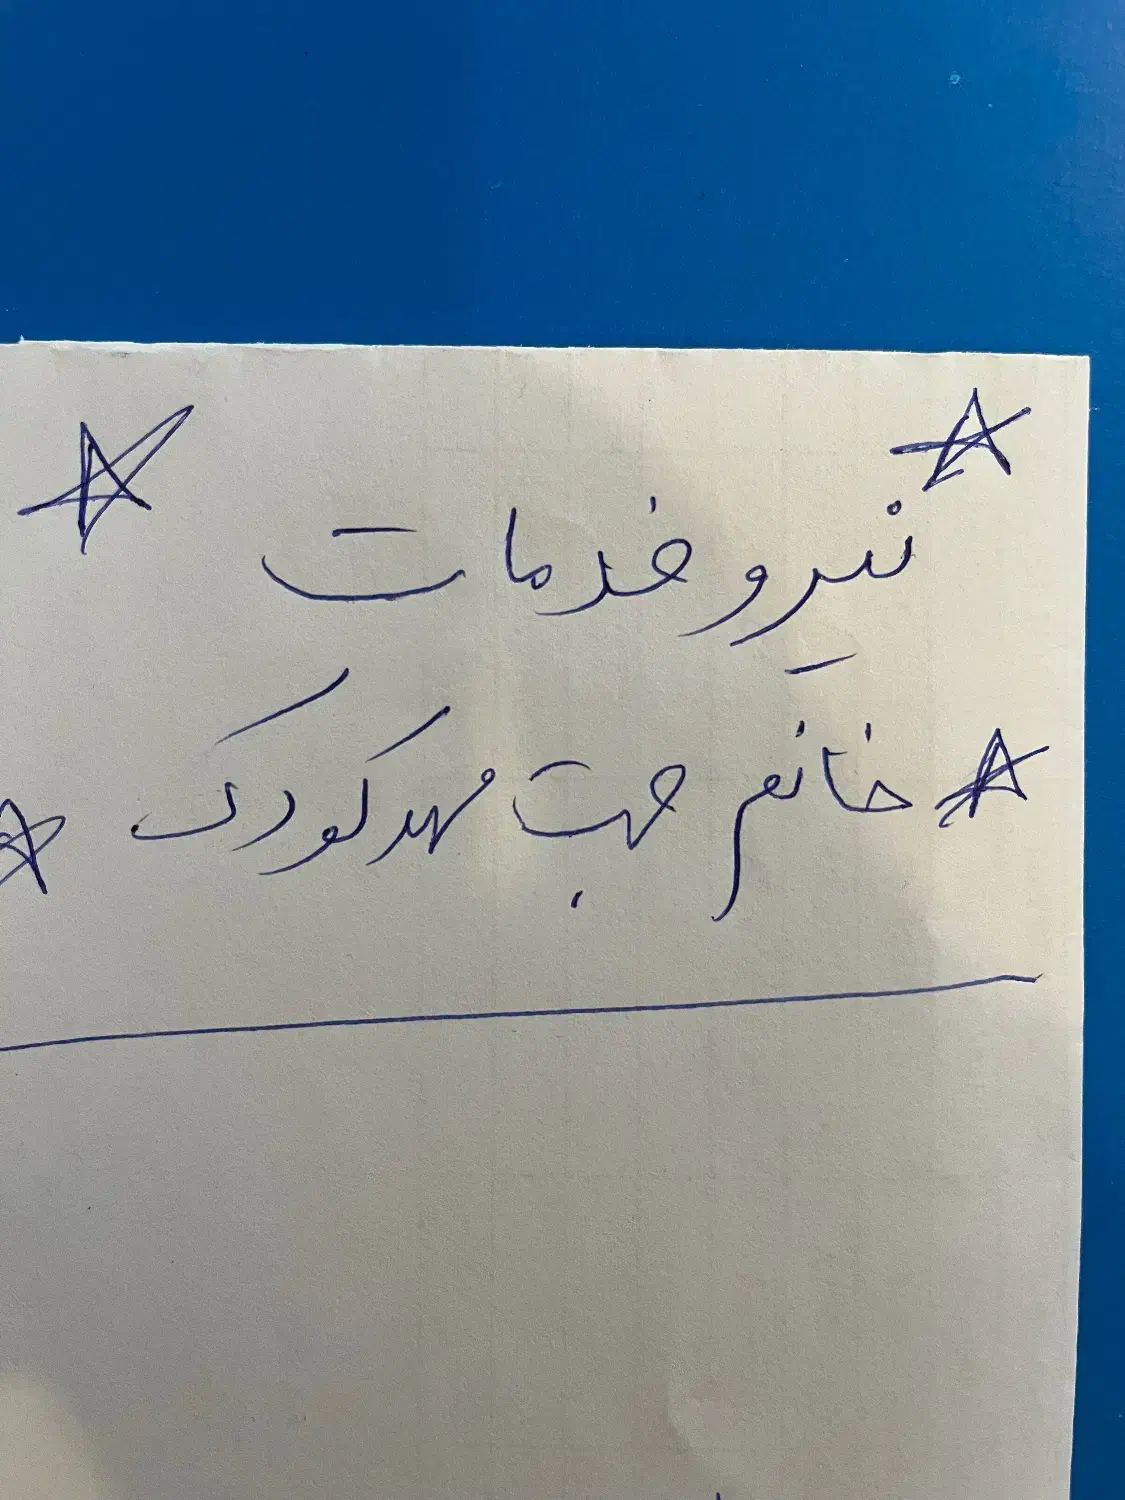 نیرو خدمات
خانم جهت مهد کودک